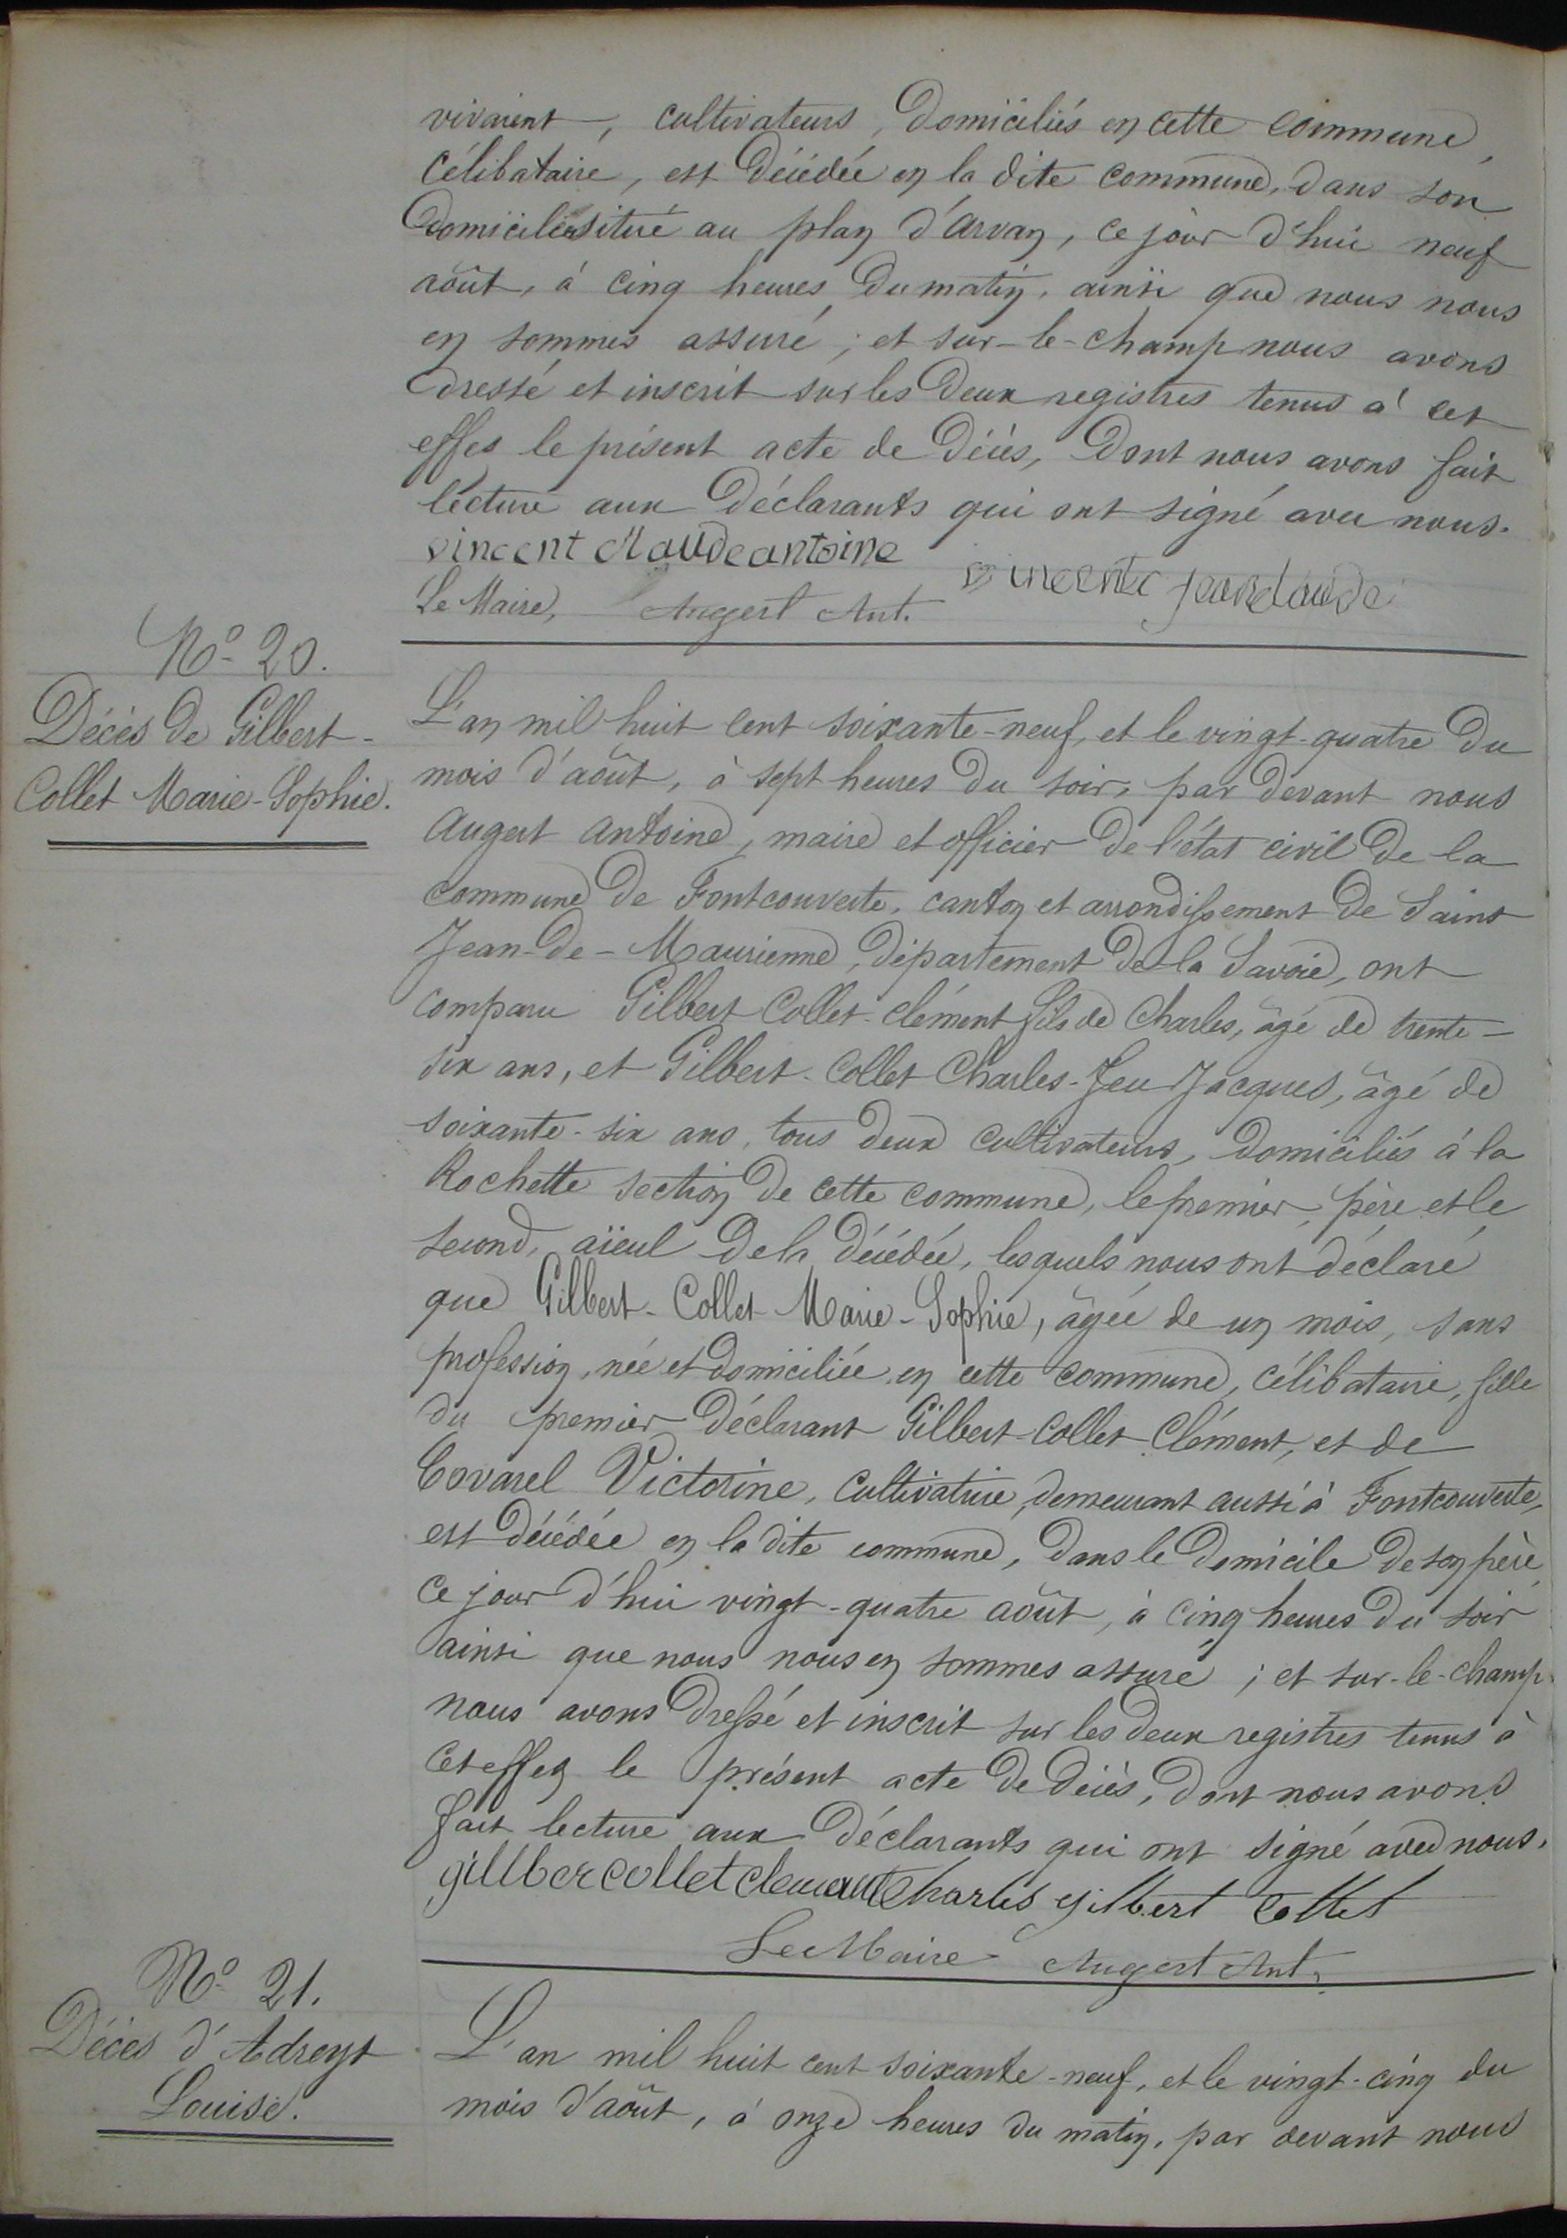 vivaient, cultivateurs, domiciliés en cette commune,
célibataire, est décédée en la dite commune, dans son
domicile situé au plan d'arvan, ce jour d'hui neuf
août, à cinq heures du matin, ainsi que nous nous
en sommes assuré; et sur-le-champ nous avons
dressé et inscrit sur les deux registres tenus à cet
effet le présent acte de décès, dont nous avons fait
lecture aux déclarants qui ont signé avec nous.
vincent Claude antoine
vincent jean claude
Le Maire, Augert Ant.
No 20.
Décès de Gilbert-
Collet Marie-Sophie.
L'an mil huit cent soixante-neuf, et le vingt-quatre du
mois d'août, à sept heures du soir, par devant nous
Augert antoine, maire et officier de l'état civil de la
commune de Fontcouverte, canton et arrondissement de Saint
Jean-de-Maurienne, département de la Savoie, ont
comparu Gilbert Collet-Clément fils de Charles, âgé de trente-
six ans, et Gilbert-Collet Charles-feu Jacques, âgé de
soixante-six ans, tous deux cultivateurs, domiciliés à la
Rochette section de cette commune, le premier, père et le
second, aïeul de la décédée, lesquels nous ont déclaré
que Gilbert-Collet Marie-Sophie, âgée de un mois, sans
profession, née et domiciliée en cette commune, célibataire, fille
du premier déclarant Gilbert-Collet Clément, et de
Covarel Victorine, cultivatrice, demeurant aussi à Fontcouverte,
est décédée en la dite commune, dans le domicile de son père,
ce jour d'hui vingt-quatre août, à cinq heures du soir
ainsi que nous nous en sommes assuré; et sur-le-champ
nous avons dressé et inscrit sur les deux registres tenus à
cet effet le présent acte de décès, dont nous avons
fait lecture aux déclarants qui ont signé avec nous.
gillber collet clemant Charles gilbert Collet
Le Maire Augert Ant.
No 21.
Décès d'Adreyt
Louise.
L'an mil huit cent soixante-neuf, et le vingt-cinq du
mois d'août, à onze heures du matin, par devant nous